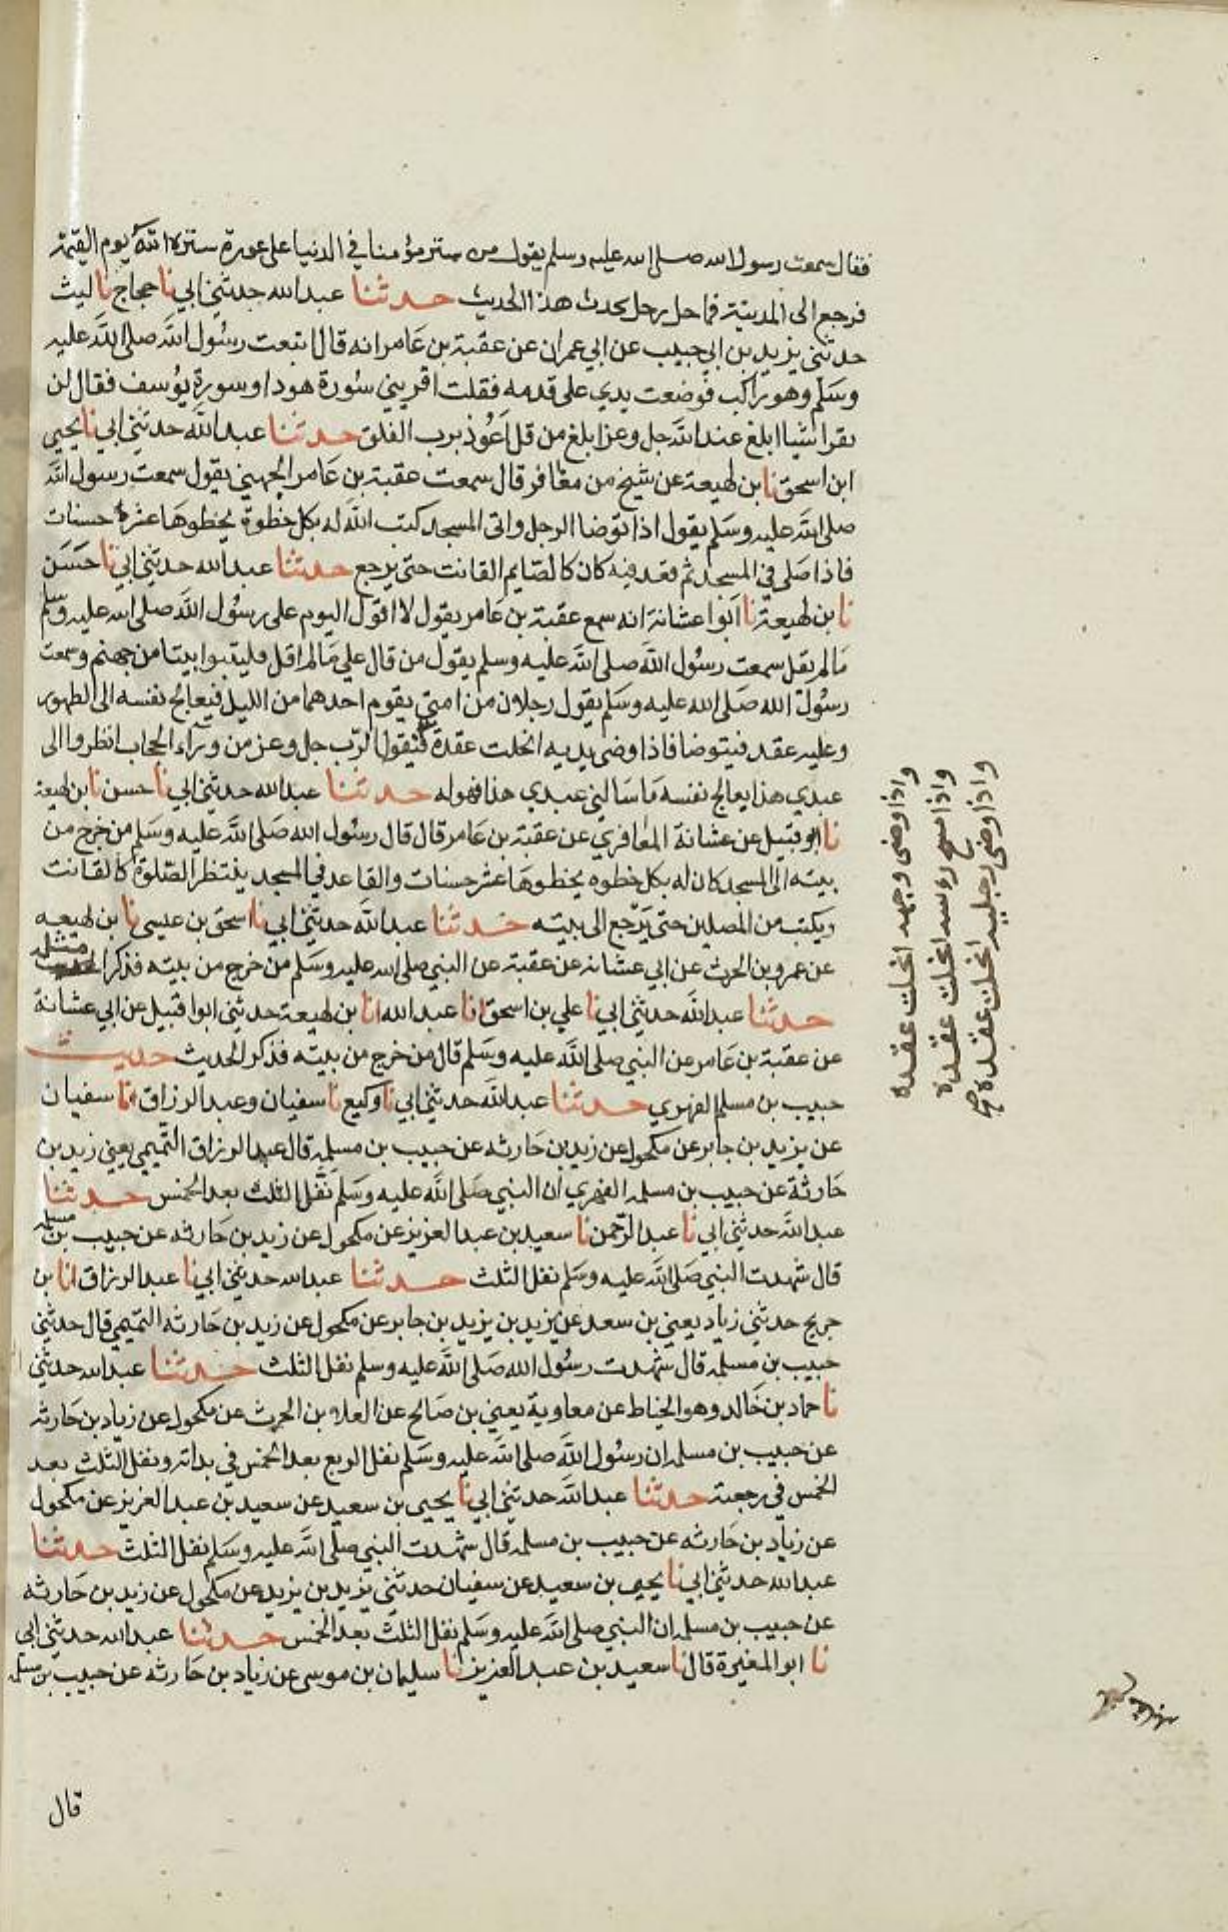 فقال سمعت رسول الله صلى الله عليه وسلم يقول من ستر مؤمنا في الدنيا على عورة ستره الله يوم القيمة
فرجع الى المدينة فما حل رحل يحدث هذا الحديث حدثنا عبد الله حدثني ابي نا حجاج نا ليث
حدثني يزيد بن ابي حبيب عن ابي عمران عن عقبة بن عامر انه قال اتبعت رسول الله صلى الله عليه
وسلم وهو راكب فوضعت يدي على قدمه فقلت اقريني سورة هود او سورة يوسف فقال لن
تقرا شيا ابلغ عند الله جل وعز ابلغ من قل اعوذ برب الفلق حدثنا عبد الله حدثني ابي نا يحيى
ابن اسحق نا بن لهيعة عن شيخ من معافر قال سمعت عقبة بن عامر الجهني يقول سمعت رسول الله
صلى الله عليه وسلم يقول اذا توضا الرجل واتى المسجد كتب الله له بكل خطوة يخطوها عشرة حسنات
فاذا صلى في المسجد ثم قعد فيه كان كالصايم القانت حتى يرجع حدثنا عبد الله حدثني ابي نا حسن
نا بن لهيعة نا ابوا عشانة انه سمع عقبة بن عامر يقول لا اقول اليوم على رسول الله صلى الله عليه وسلم
ما لم يقل سمعت رسول الله صلى الله عليه وسلم يقول من قال علي ما لم اقل فليتبوا بيتا من جهنم وسمعت
رسول الله صلى الله عليه وسلم يقول رجلان من امتي يقوم احدهما من الليل فيعالج نفسه الى الطهور
وعليه عقد فيتوضا فاذا وضى يديه انحلت عقدة فيقول الرب جل وعز من ورآء الحجاب انظروا الى
عبدي هذا يعالج نفسه ما سالني عبدي هذا فهو له حدثنا عبد الله حدثني ابي نا حسن نا بن لهيعة
نا ابو قبيل عن عشانة المعافري عن عقبة بن عامر قال قال رسول الله صلى الله عليه وسلم من خرج من
بيته الى المسجد كان له بكل خطوه يخطوها عشر حسنات والقاعد في المسجد ينتظر الصلوة كالقانت
ويكتب من المصلين حتى يرجع الى بيته حدثنا عبد الله حدثني ابي نا اسحق بن عيسى نا بن لهيعه
عن عمرو بن الحرث عن ابي عشانه عن عقبة عن النبي صلى الله عليه وسلم من خرج من بيته فذكر مثله
حدثنا عبد الله حدثني ابي نا علي بن اسحق انا عبد الله انا بن لهيعة حدثني ابوا قبيل عن ابي عشانة
عن عقبة بن عامر عن النبي صلى الله عليه وسلم قال من خرج من بيته فذكر الحديث حديث
حبيب بن مسلم الفهري حدثنا عبد الله حدثني ابي نا وكيع نا سفيان وعبد الرزاق انا سفيان
عن يزيد بن جابر عن مكحول عن زيد بن حارثه عن حبيب بن مسلمه قال عبد الرزاق التميمي يعني زيد بن
حارثة عن حبيب بن مسلمه الفهري ان النبي صلى الله عليه وسلم نفل الثلث بعد الخمس حدثنا
عبد الله حدثني ابي نا عبد الرحمن نا سعيد بن عبد العزيز عن مكحول عن زيد بن حارثه عن حبيب بن مسلمه
قال شهدت النبي صلى الله عليه وسلم نفل الثلث حدثنا عبد الله حدثني ابي نا عبد الرزاق انا بن
جريج حدثني زياد يعني بن سعد عن يزيد بن يزيد بن جابر عن مكحول عن زيد بن حارثه التميمي قال حدثني
حبيب بن مسلمه قال شهدت رسول الله صلى الله عليه وسلم نفل الثلث حدثنا عبد الله حدثني
نا حماد بن خالد وهو الخياط عن معاوية يعني بن صالح عن العلاء بن الحرث عن مكحول عن زياد بن حارثه
عن حبيب بن مسلمه ان رسول الله صلى الله عليه وسلم نفل الربع بعد الخمس في بداته ونفل الثلث بعد
الخمس في رجعته حدثنا عبد الله حدثني ابي نا يحيى بن سعيد عن سعيد بن عبد العزيز عن مكحول
عن زياد بن حارثه عن حبيب بن مسلمه قال شهدت النبي صلى الله عليه وسلم نفل الثلث حدثنا
عبد الله حدثني ابي نا يحيى بن سعيد عن سفيان حدثني يزيد بن يزيد عن مكحول عن زيد بن حارثه
عن حبيب بن مسلمه ان النبي صلى الله عليه وسلم نفل الثلث بعد الخمس حدثنا عبد الله حدثني ابي
نا ابو المغيرة قال نا سعيد بن عبد العزيز نا سليمان بن موسى عن زياد بن حارثه عن حبيب بن مسلمه
قال
واذا وضى وجهه انحلت عقده
واذا مسح روسه انحلت عقدة
واذا وضى رجليه انحلت عقدة صح